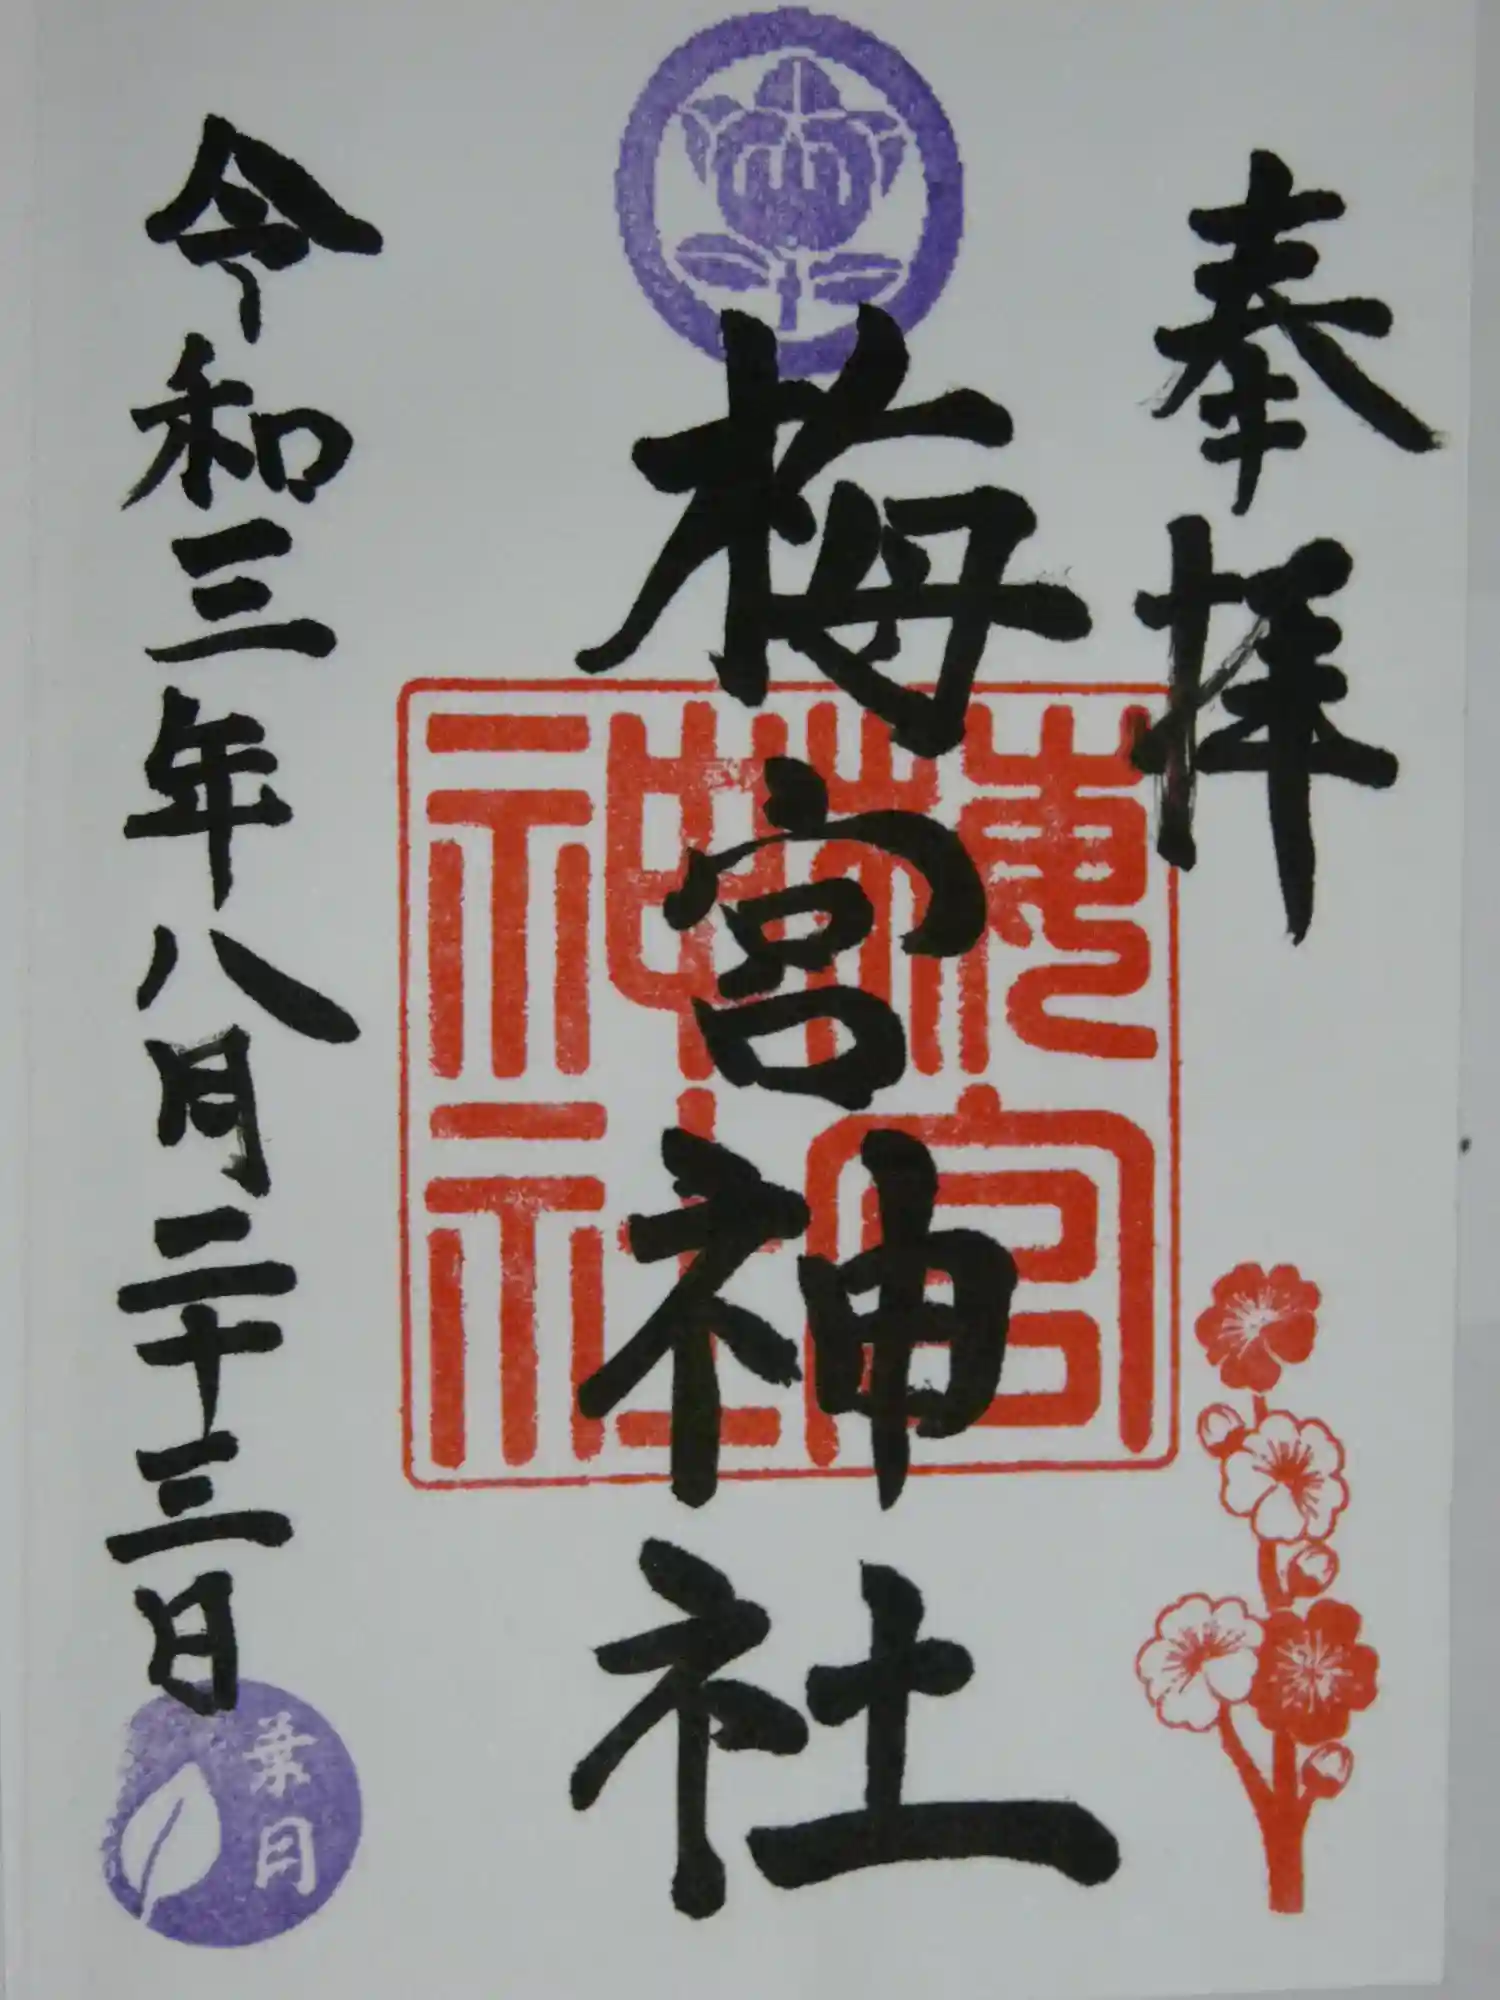 奉拝
梅宮神社
梅宮
神社
令和三年八月二十三日
葉月